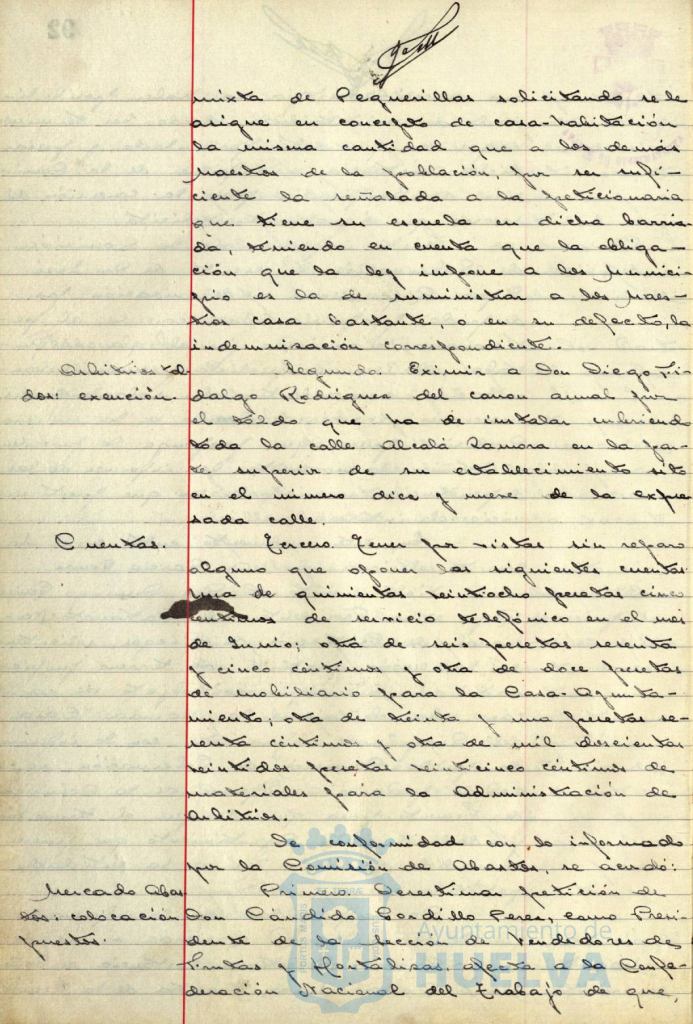 mixta de Peguerillas solicitando se le
asigne en concepto de casa-habitación
la misma cantidad que a los demás
Maestros de la población, por ser sufi-
ciente la señalada a la peticionaria
que tiene su escuela en dicha barria-
da, teniendo en cuenta que la obliga-
ción que la ley impone a los Munici-
pio es la de suministrar a los Maes-
tros casa bastante, o en su defecto, la
indemnización correspondiente.
Arbitrios tol-
dos: exención.
Segundo. Eximir a Don Diego Fi-
dalgo Rodríguez del canon anual por
el toldo que ha de instalar cubriendo
toda la calle Alcalá Zamora en la par-
te superior de su establecimiento sito
en el número diez y nueve de la expre-
sada calle.
Cuentas.
Tercero. Tener por vistas sin reparo
alguno que oponer las siguientes cuentas:
una de quinientas veintiocho pesetas cinco
céntimos de servicio telefónico en el mes
de Junio; otra de seis pesetas sesenta
y cinco céntimos y otra de doce pesetas
de mobiliario para la Casa-Ayunta-
miento; otra de treinta y una pesetas se-
senta céntimos y otra de mil doscientas
veintidos pesetas veinticinco céntimos de
materiales para la Administración de
Arbitrios.
De conformidad con lo informado
por la Comisión de Abastos, se acordó:
Mercado Abas-
tos: colocación
puestos.
Primero. Desestimar petición de
Don Cándido Gordillo Perez, como Presi-
dente de la Sección de Vendedores de
Frutas y Hortalizas, afecta a la Confe-
deración Nacional del Trabajo de que,
Ayuntamiento de
HUELVA